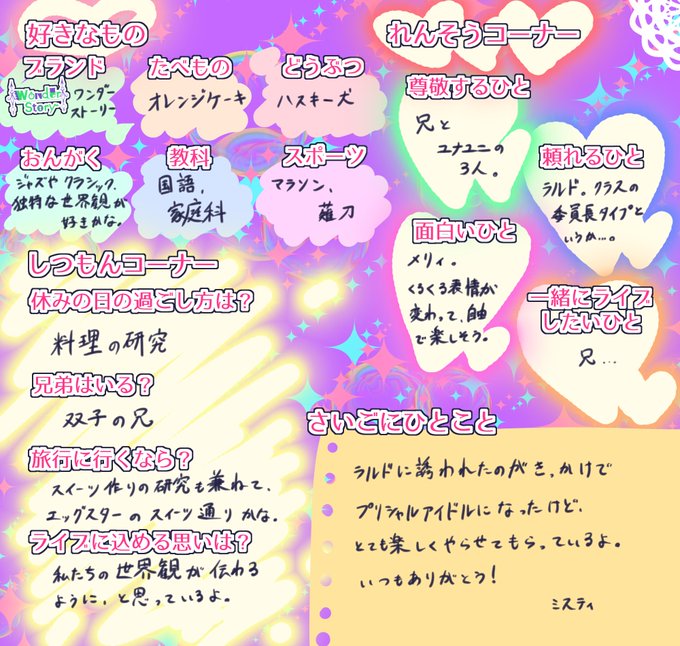 好きなもの
ブランド
Wonder Story
ワンダー
ストーリー
たべもの
オレンジケーキ
どうぶつ
ハスキー犬
おんがく
ジャズやクラシック、
独特な世界観が
好きかな。
教科
国語、
家庭科
スポーツ
マラソン、
薙刀
れんそうコーナー
尊敬するひと
兄と
ユナユニの
3人。
頼れるひと
ラルド。クラスの
委員長タイプと
いうか…。
面白いひと
メリィ。
くるくる表情が
変わって、自由
で楽しそう。
一緒にライブ
したいひと
兄…
しつもんコーナー
休みの日の過ごし方は？
料理の研究
兄弟はいる？
双子の兄
旅行に行くなら？
スイーツ作りの研究も兼ねて、
エッグスターのスイーツ通りかな。
ライブに込める思いは？
私たちの世界観が伝わる
ように、と思っているよ。
さいごにひとこと
ラルドに誘われたのがきっかけで
プリシャルアイドルになったけど、
とても楽しくやらせてもらっているよ。
いつもありがとう！
ミスティ